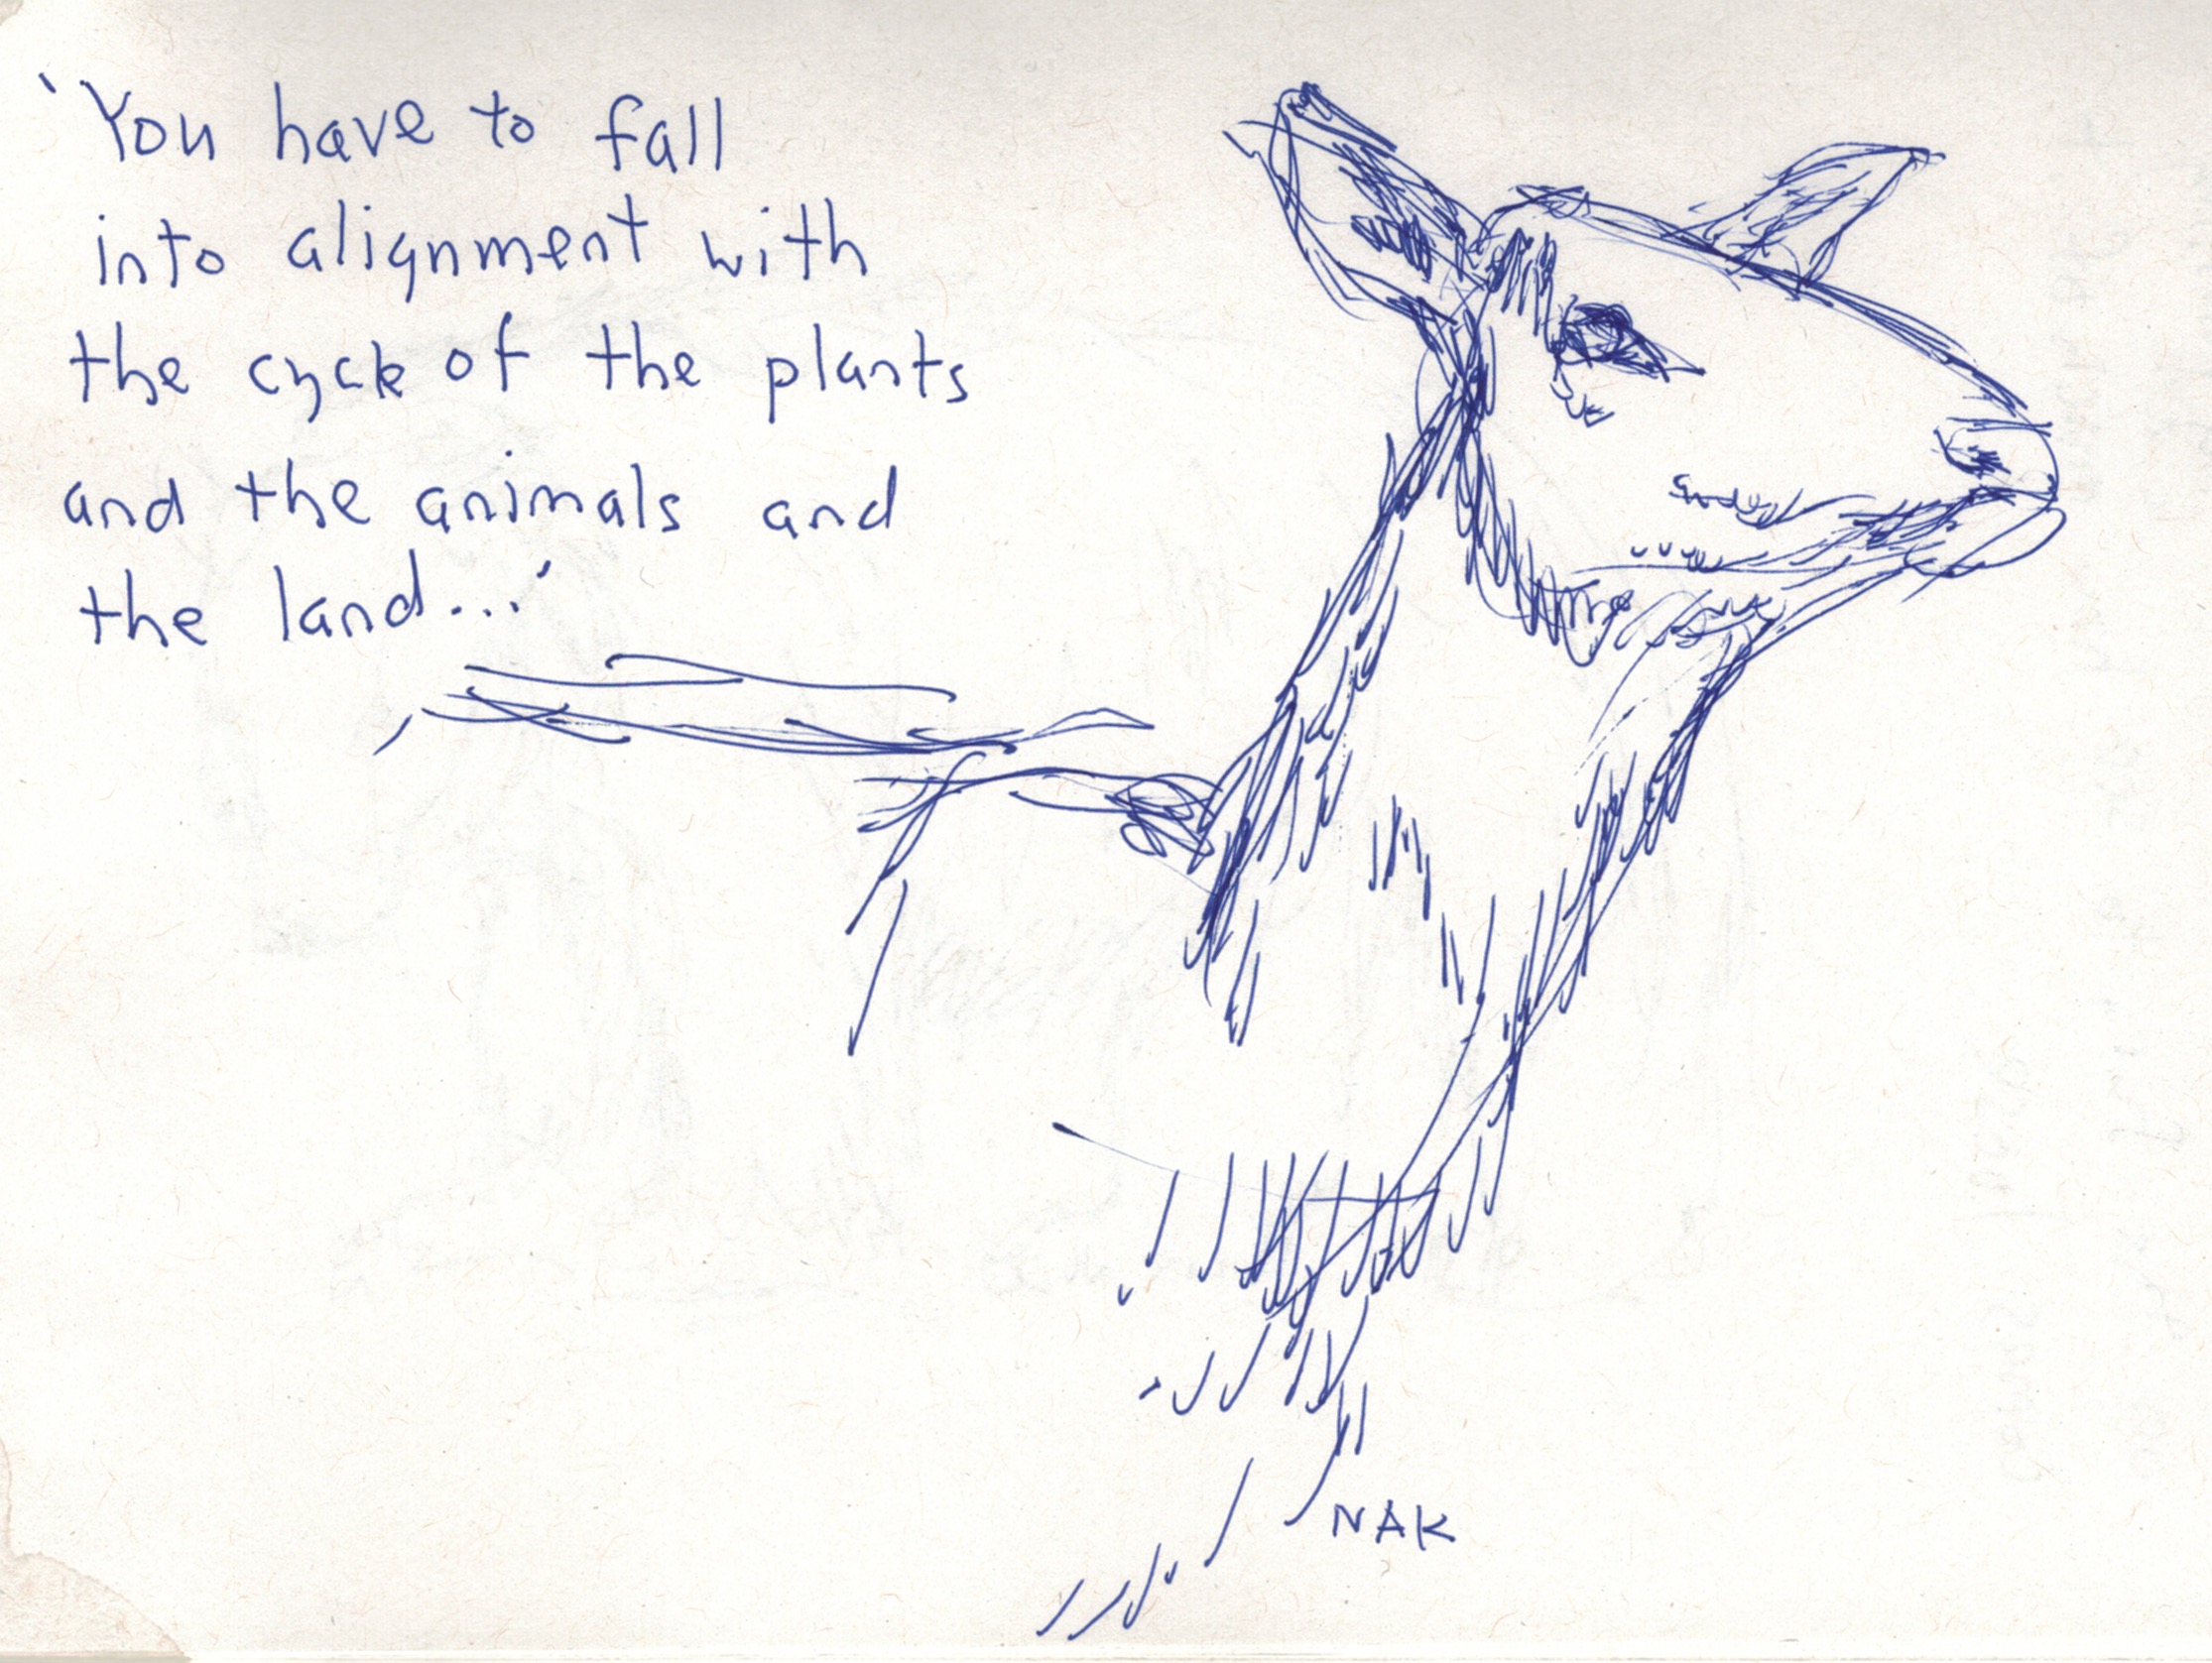 'You have to fall
into alignment with
the cycle of the plants
and the animals and
the land...'
NAK